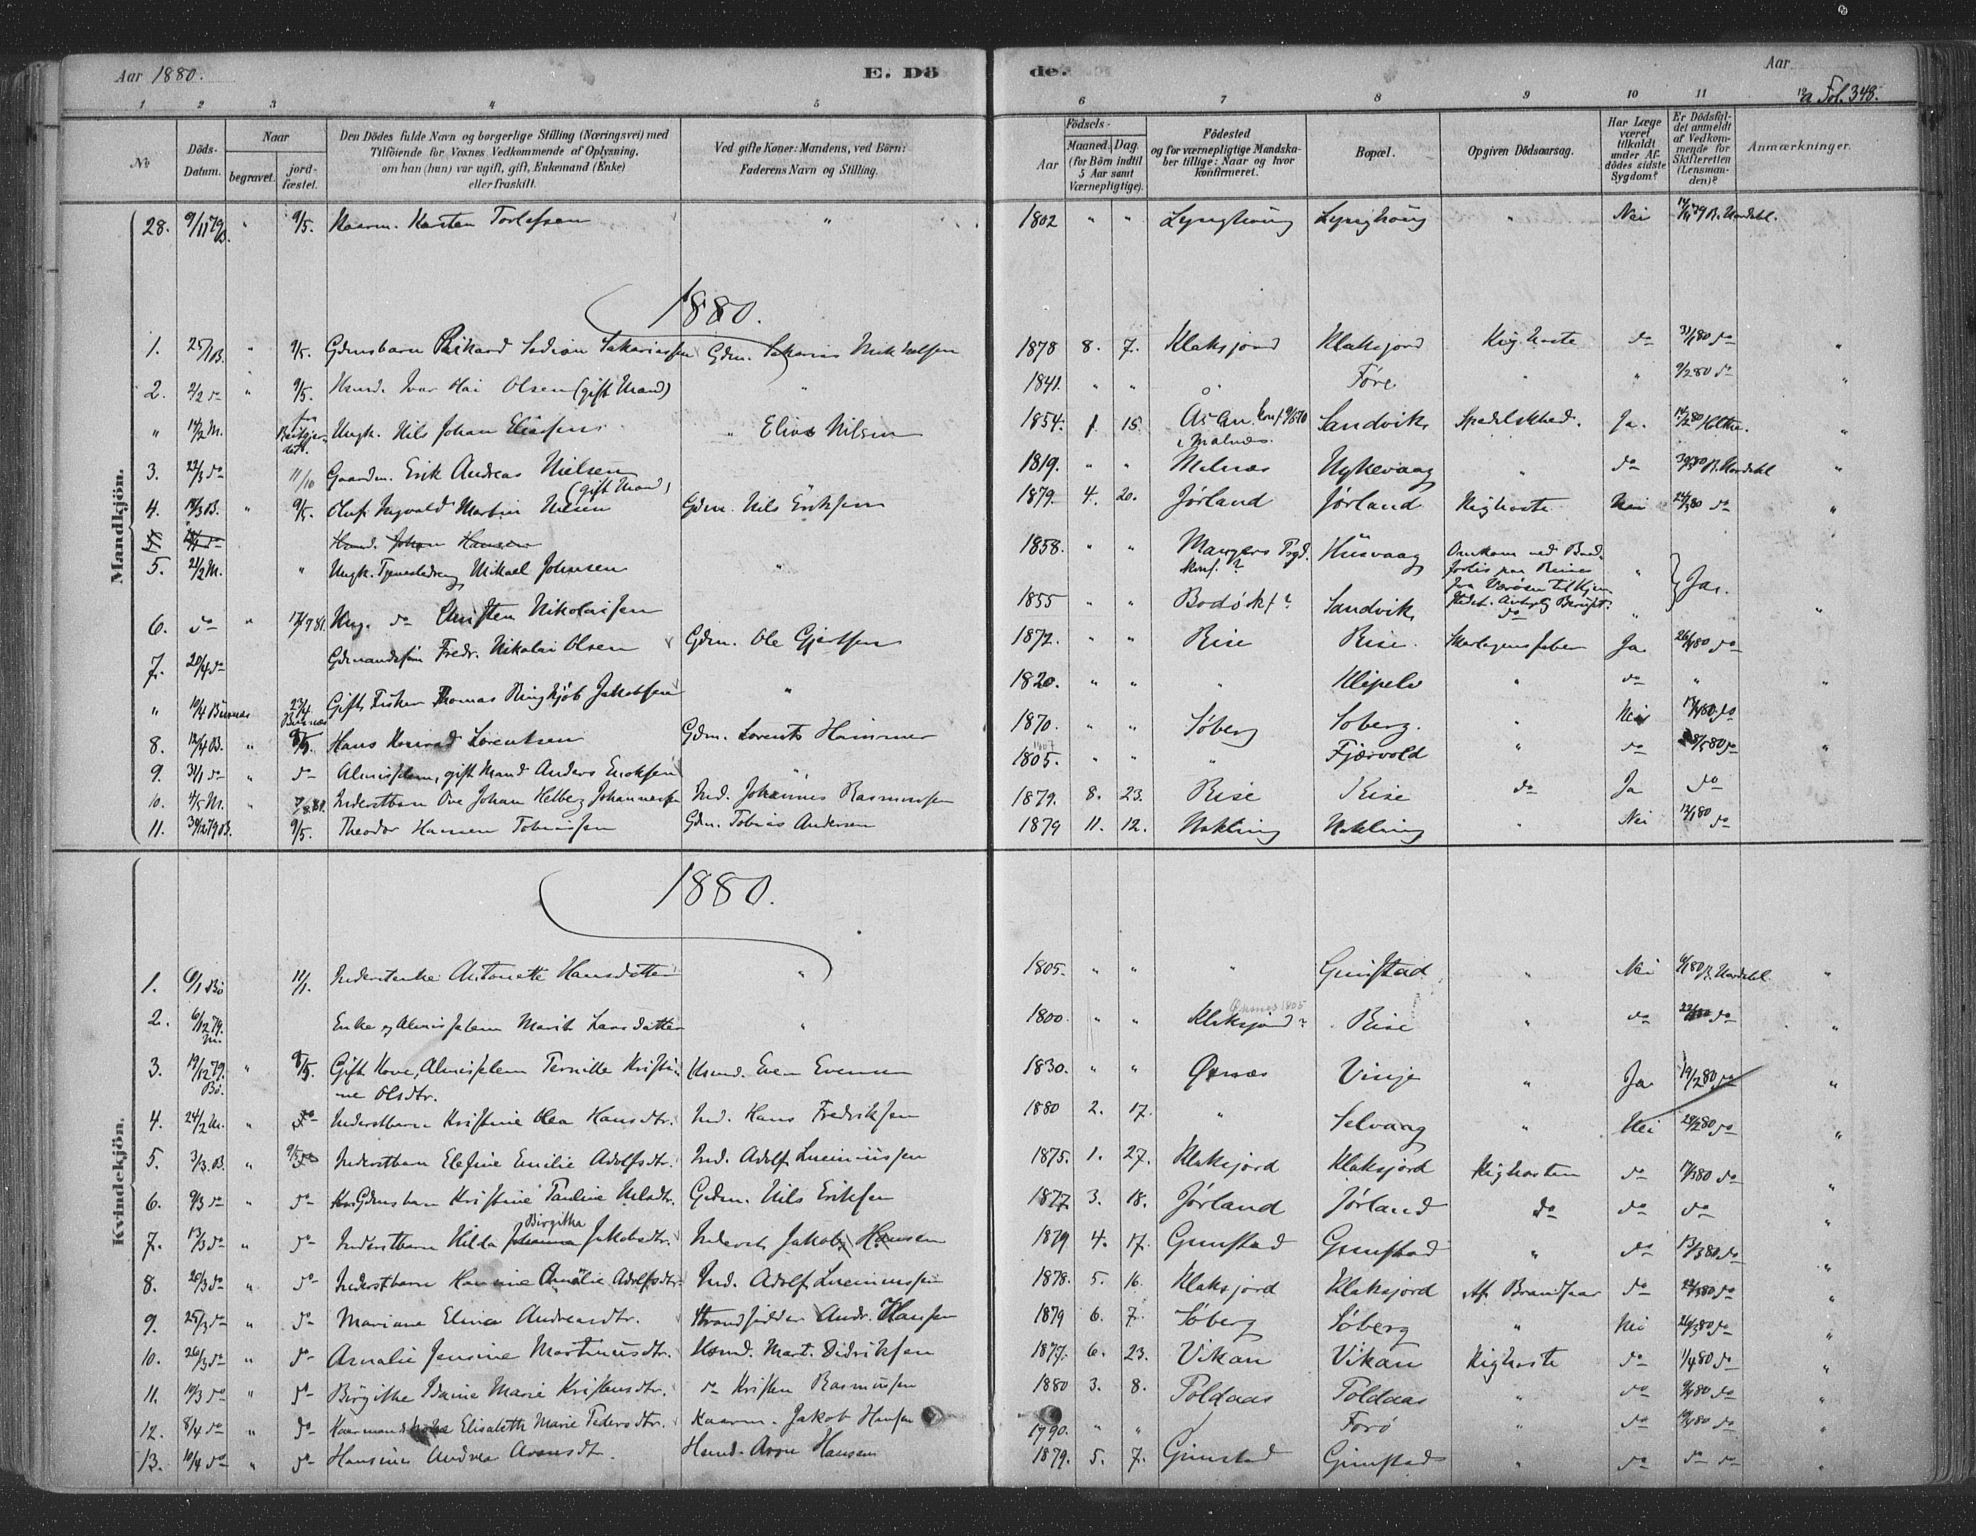 Aar 1880.
E. Dö
de.
Aar
Fol. 348.
1 2 3 4 5 6 7 8 9 10 11 12
No
Döds-Datum.
Naar
begravet.
jord-fæstet.
Den Dödes fulde Navn og borgerlige Stilling (Næringsvei) med
Tilföiende for Voxnes Vedkommende af Oplysning,
om han (hun) var ugift, gift, Enkemand (Enke)
eller fraskilt.
Ved gifte Koner: Mandens, ved Börn:
Faderens Navn og Stilling.
Födsels-
Aar
Maaned. Dag.
(for Börn indtil
5 Aar samt
Værnepligtige).
Födested
og for værnepligtige Mandska-
ber tillige: Naar og hvor
konfirmeret.
Bopæl.
Opgiven Dödsaarsag.
Har Læge
været
tilkaldt
under Af-
dödes sidste
Sygdom?
Er Dödsfal-
det anmeldt
af Vedkom-
mende for
Skifteretten
(Lensman-
den)?
Anmærkninger.
Mandkjön.
28. 9/11 79 B. " 9/5. Kaarm. Karsten Torlefsen " 1802 " " Lynghaug Lynghaug " Nei
1880.
1. 25/1 B. " 9/5. Gdmsbarn Rikard Sakariassen Gdm. Sakarias 1878 8. 7. Klaksjord Klaksjord Kighoste do 31/1 80 do "
2. 2/2 do " 9/5. Husmd. Ivar Hai Olsen (gift Mand) " 1841. " " " Føre " " 9/2 80 do "
" 14/2 M. Ungk. Nils Johan Eliassen " Elias Nilsen 1854. 1 15. i Malnes. Sandvik Spedalskhed. Ja. "
3. 23/3 do 11/10 Gaardm. Erik Andreas Nielsen (gift Mand) 1819. " " Melnæs Nykevaag " do "
4. 14/3 B. " 9/5. Oluf Martin Nilsen Gdm. Nils Eriksen 1879. 4. 20. Jørland Jørland Kighoste Nei 24/3 80 do "
Husmd. Johan Hansen
5. 21/2 M. " Ungk. Tjenestedreng Mikael Johnsen " 1858. " " konf. ? Husvaag Omkom ved Baad- " Ja.
6. do " 17/7 81. Ung. do Christen Nikolaisen 1855 " " Bodø Sandvik do " "
7. 20/4 do Gdmandssøn Fredr. Nikolai Olsen Gdm. Ole Gjertsen 1872. " " Rise Rise. Skarlagensfeber Ja 26/4 80 do "
" 10/4 23/4 Gift Fisker Thomas Ringkjøb Jakobsen " 1820. " " " Klipelv " do " "
8. 12/4 B. " 9/5. Hans Konrad Lorentsen Gdm. Lorents Hammer 1870. " " Søberg Søberg. " Nei 17/4 80 do
9. 31/1 do " do Almisselem, gift Mand Anders Eriksen " 1805. " Fjærvold " do 8/5 80 do "
10. 4/5 M. " Inderstbarn Ove Johan Helberg Johannessen Ind. Johannes Rasmussen 1879. 8. 23. Rise Rise do Ja do
11. 30/12 79 B. 9/5. Theodor Hansen Tobiassen Gdm. Tobias Andersen 1879 11. 12. Nokling Nokling " Nei 12/1 80 do
Kvindekjön.
1880.
1. 6/1 Bö 11/1. Inderstenke Antonette Hansdatter " 1805. " " " Guvstad " Nei "
2. 6/12 79. M. Enke og Almisselem Marit Larsdatter " 1800. " " Klaksjord? Rise " do do "
3. 19/12 79. Bö. " 9/5. Gift Kone, Almisselem Pernille Kristi-
ne Olsdtr. Husmd. Even Evensen 1830. " " Øxnæs Vinje " Ja 19/2 80 do "
4. 24/2 M. " do Inderstbarn Kristine Olea Hansdtr. Ind. Hans Fredriksen 1880 2. 17. " Selvaag " Nei 28/2 80 do "
5. 3/3. B. " 9/5 Inderstbarn Elefine Emilie Adolfsdtr. Ind. Adolf 1875. 1. 27. Klaksjord Klaksjord Kighosten do 17/3 80 do
6. 9/3 do " do Gdmsbarn Kristine Pauline Nilsdtr. Gdm. Nils Eriksen 1877 3. 18. Jørland Jørland do do do "
7. 13/3 do " do Inderstbarn Hilda Johanna Birgitha Jakobsdtr. Inderst Jakob Hansen 1879 4. 17. Gunstad Gunstad " do 13/3 80 do "
8. 20/3 do " do Inderstbarn Amalie Adolfsdtr. Ind. Adolf 1878. 5. 16. Klaksjord Klaksjord Af Brandsaar do 22/3 80 do "
9. 25/3 do " do Mariane Elina Andreasdtr. Strandsidder Andr. Hansen 1879 6. 7. Søberg Søberg " Nei 26/3 80 do "
10. 26/3 do " do Amalie Jensine Martinusdtr. Husmd. Mart. Didriksen 1877. 6. 23. Vikan Vikan Kighoste do 1/4 80 do "
11. 10/3 do " do Birgithe Marie Kristensdtr. do Kristen Rasmussen 1880 3. 8. Toldaas Toldaas " do 9/4 80 do "
12. 8/4 do " do Elisabeth Marie Pedersdtr. Kaarm. Jakob Hansen 1790. " " Forø " do 10/4 80 do "
13. 10/4 do " do Hansine Andrea Aronsdtr. Husmd. Aron Hansen 1879. 5. 7. Gunstad Gunstad " do do do "